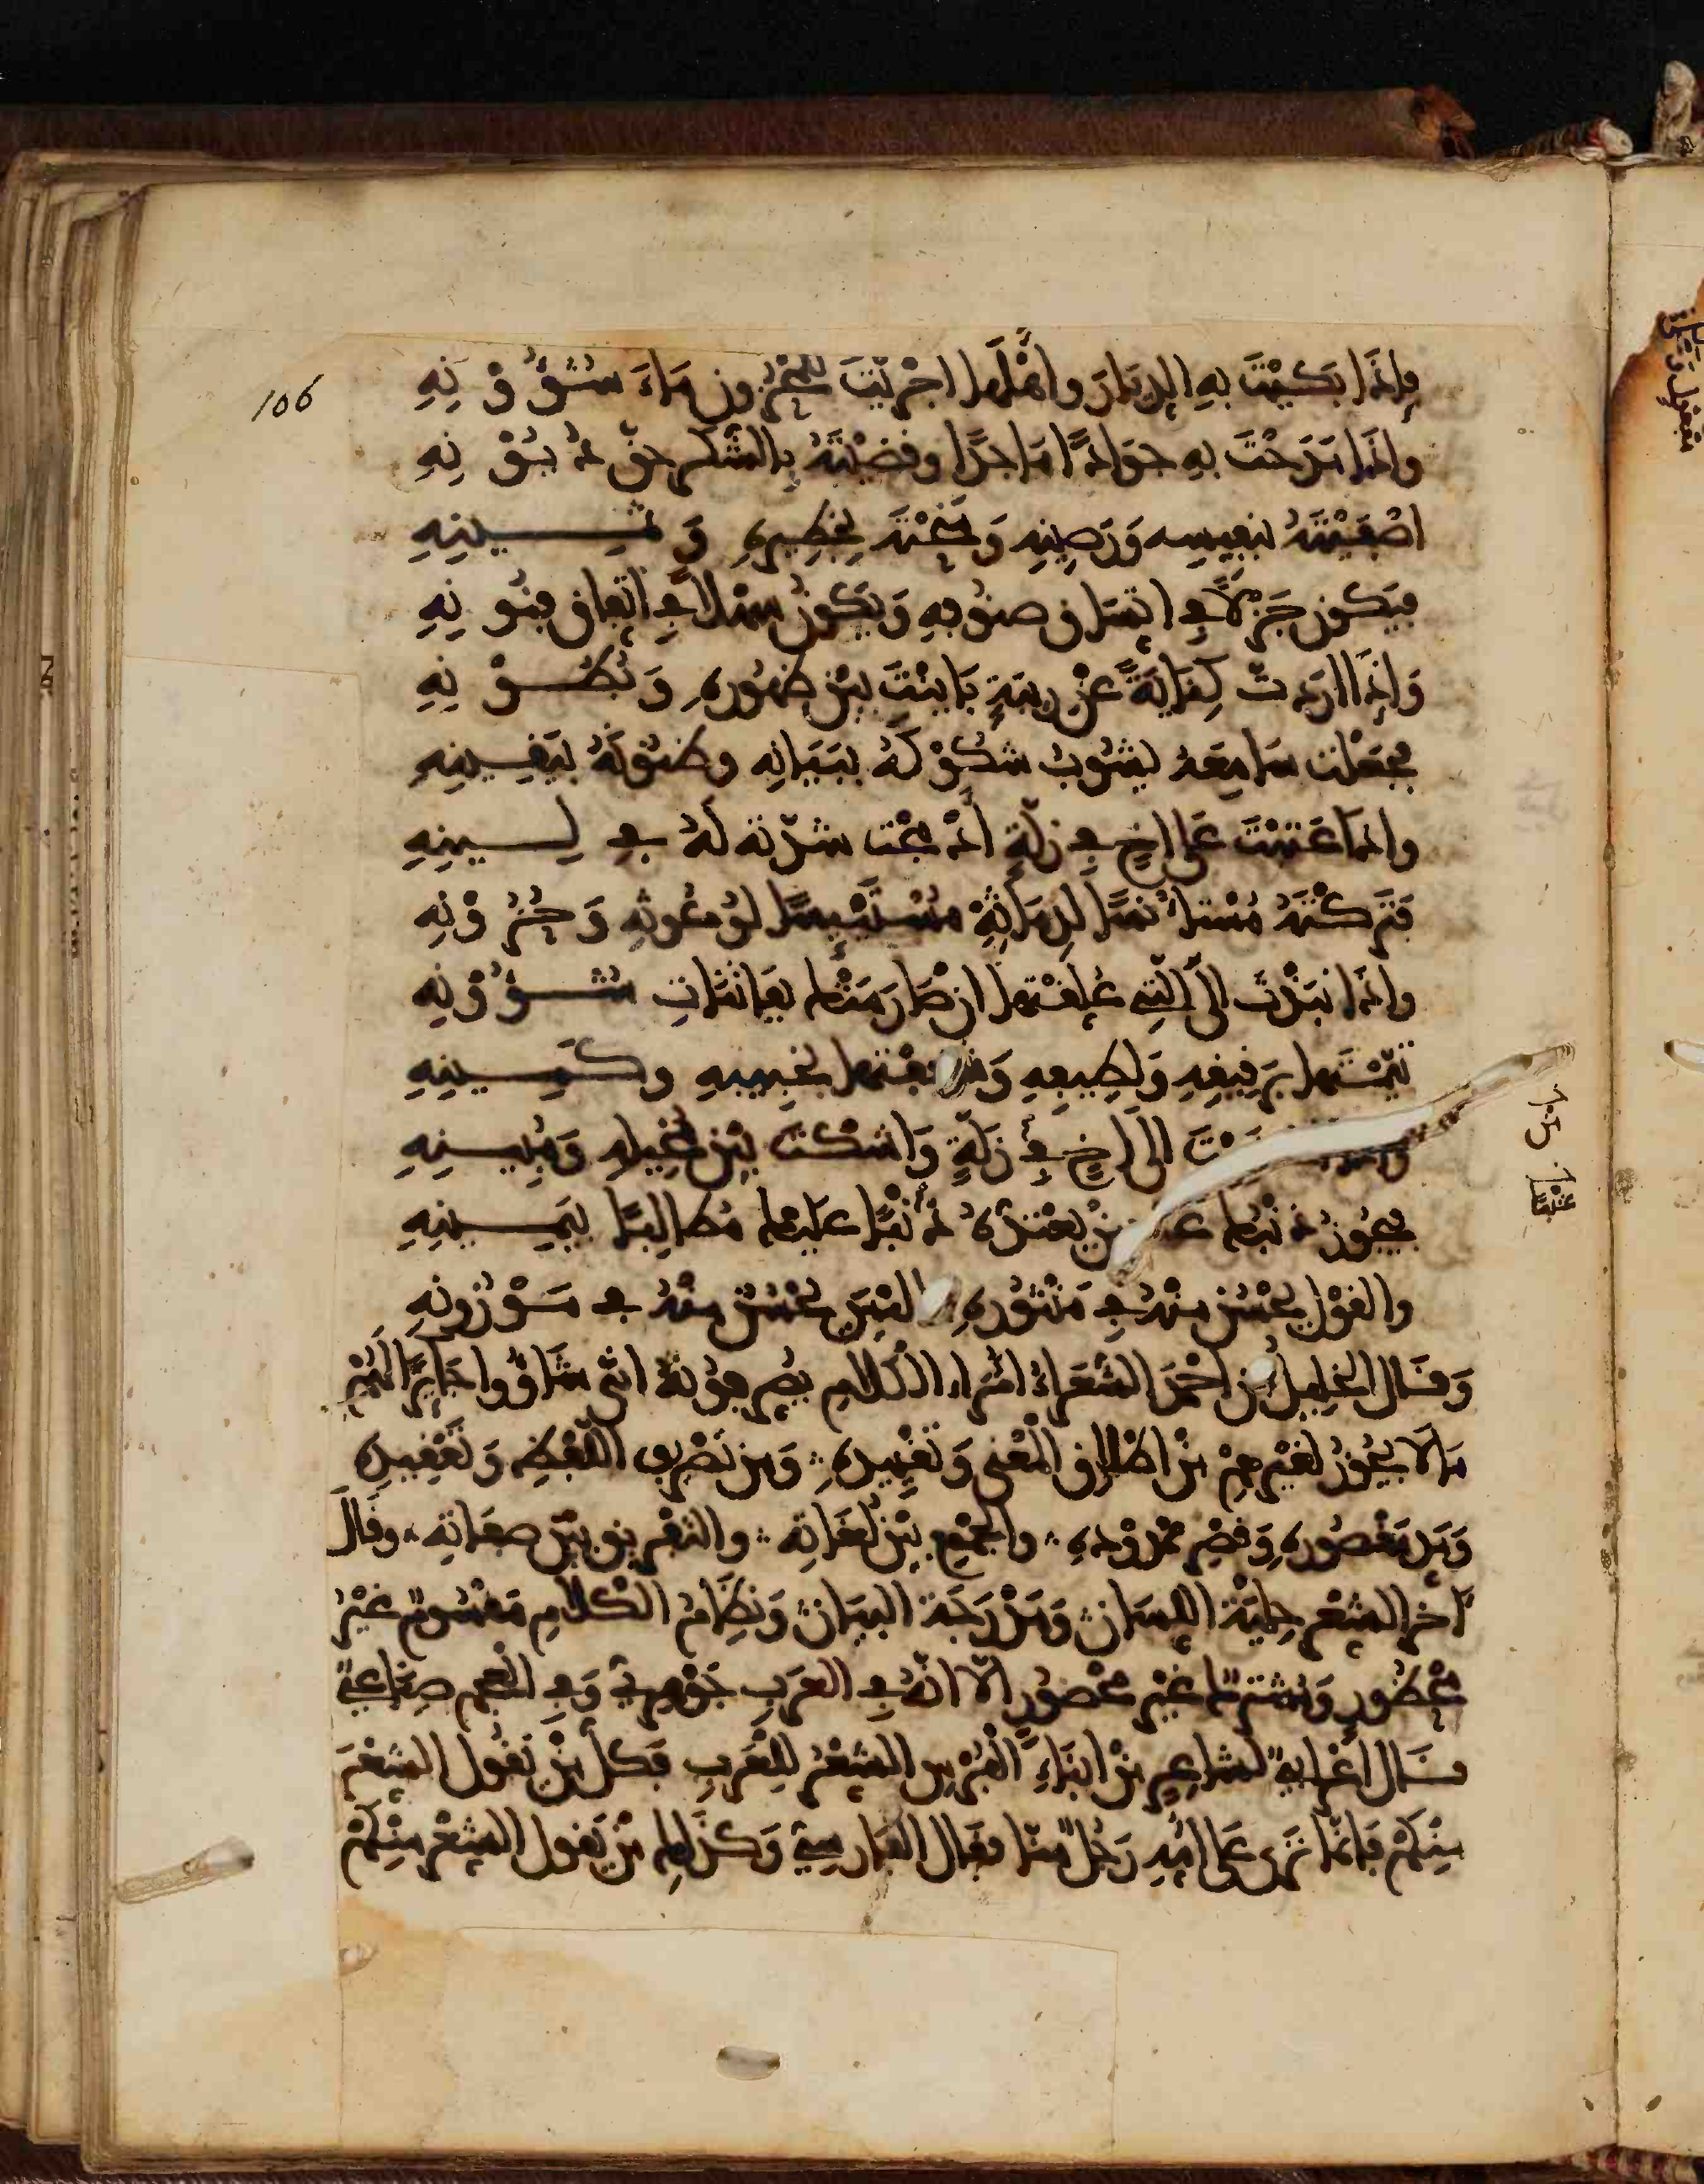 106
وإذا بكيت به الديار وأهلها أجريت للمحزون ماء شؤونه
وإذا مدحت به جوادًا ماجدًا وقضيته بالشكر حق ديونه
أصفيته بنفيسه ورصينه ومنحته بخطيره وثمينه
فيكون جزلًا في اتساق صنوفه ويكون سهلًا في اتفاق فنونه
وإذا أردت كناية عن ريبة باينت بين ظهوره وبطونه
فجعلت سامعه يشوب شكوكه ببيانه وظنونه بيقينه
وإذا عتبت على أخ في زلة أدمجت شدته له في لينه
فتركته مستأنسًا لدماثة مستيئسًا لوعوثه وحزونه
وإذا نبذت إلى التي علقتها إن صارمتك بفاتنات شؤونه
تيمتها برقيقه ولطيفه وشغفتها بخبيه وكمينه
وإذا اعتذرت إلى أخ في زلة واشكت بين مخيله ومبينه
فيحور ذنبك عند من يعتده ذنبًا عليك مطالبًا بيمينه
والقول يحسن منه في منثوره ما ليس يحسن منه في موزونه
وقال الخليل بن أحمد الشعراء أمراء الكلام يصرفونه أنى شاؤوا جائز لهم
ما لا يجوز لغيرهم من إطلاق المعنى وتقييده ومن تصريف اللفظ وتعقيده
ومد مقصوره وقصر ممدوده والجمع بين لغاته والتفريق بين صفاته وقال
آخر الشعر حلية اللسان ومدرجة البيان ونظام الكلام مقسوم غير
محظور ومشترك غير محصور إلا أنه في العرب جوهري وفي العجم صناعي
قال أعرابي لشاعر من أبناء الفرس الشعر للعرب فكل من يقول الشعر
منكم فإنما نزى على أمه رجل منا فقال الفارسي وكذلك من يقول الشعر منكم